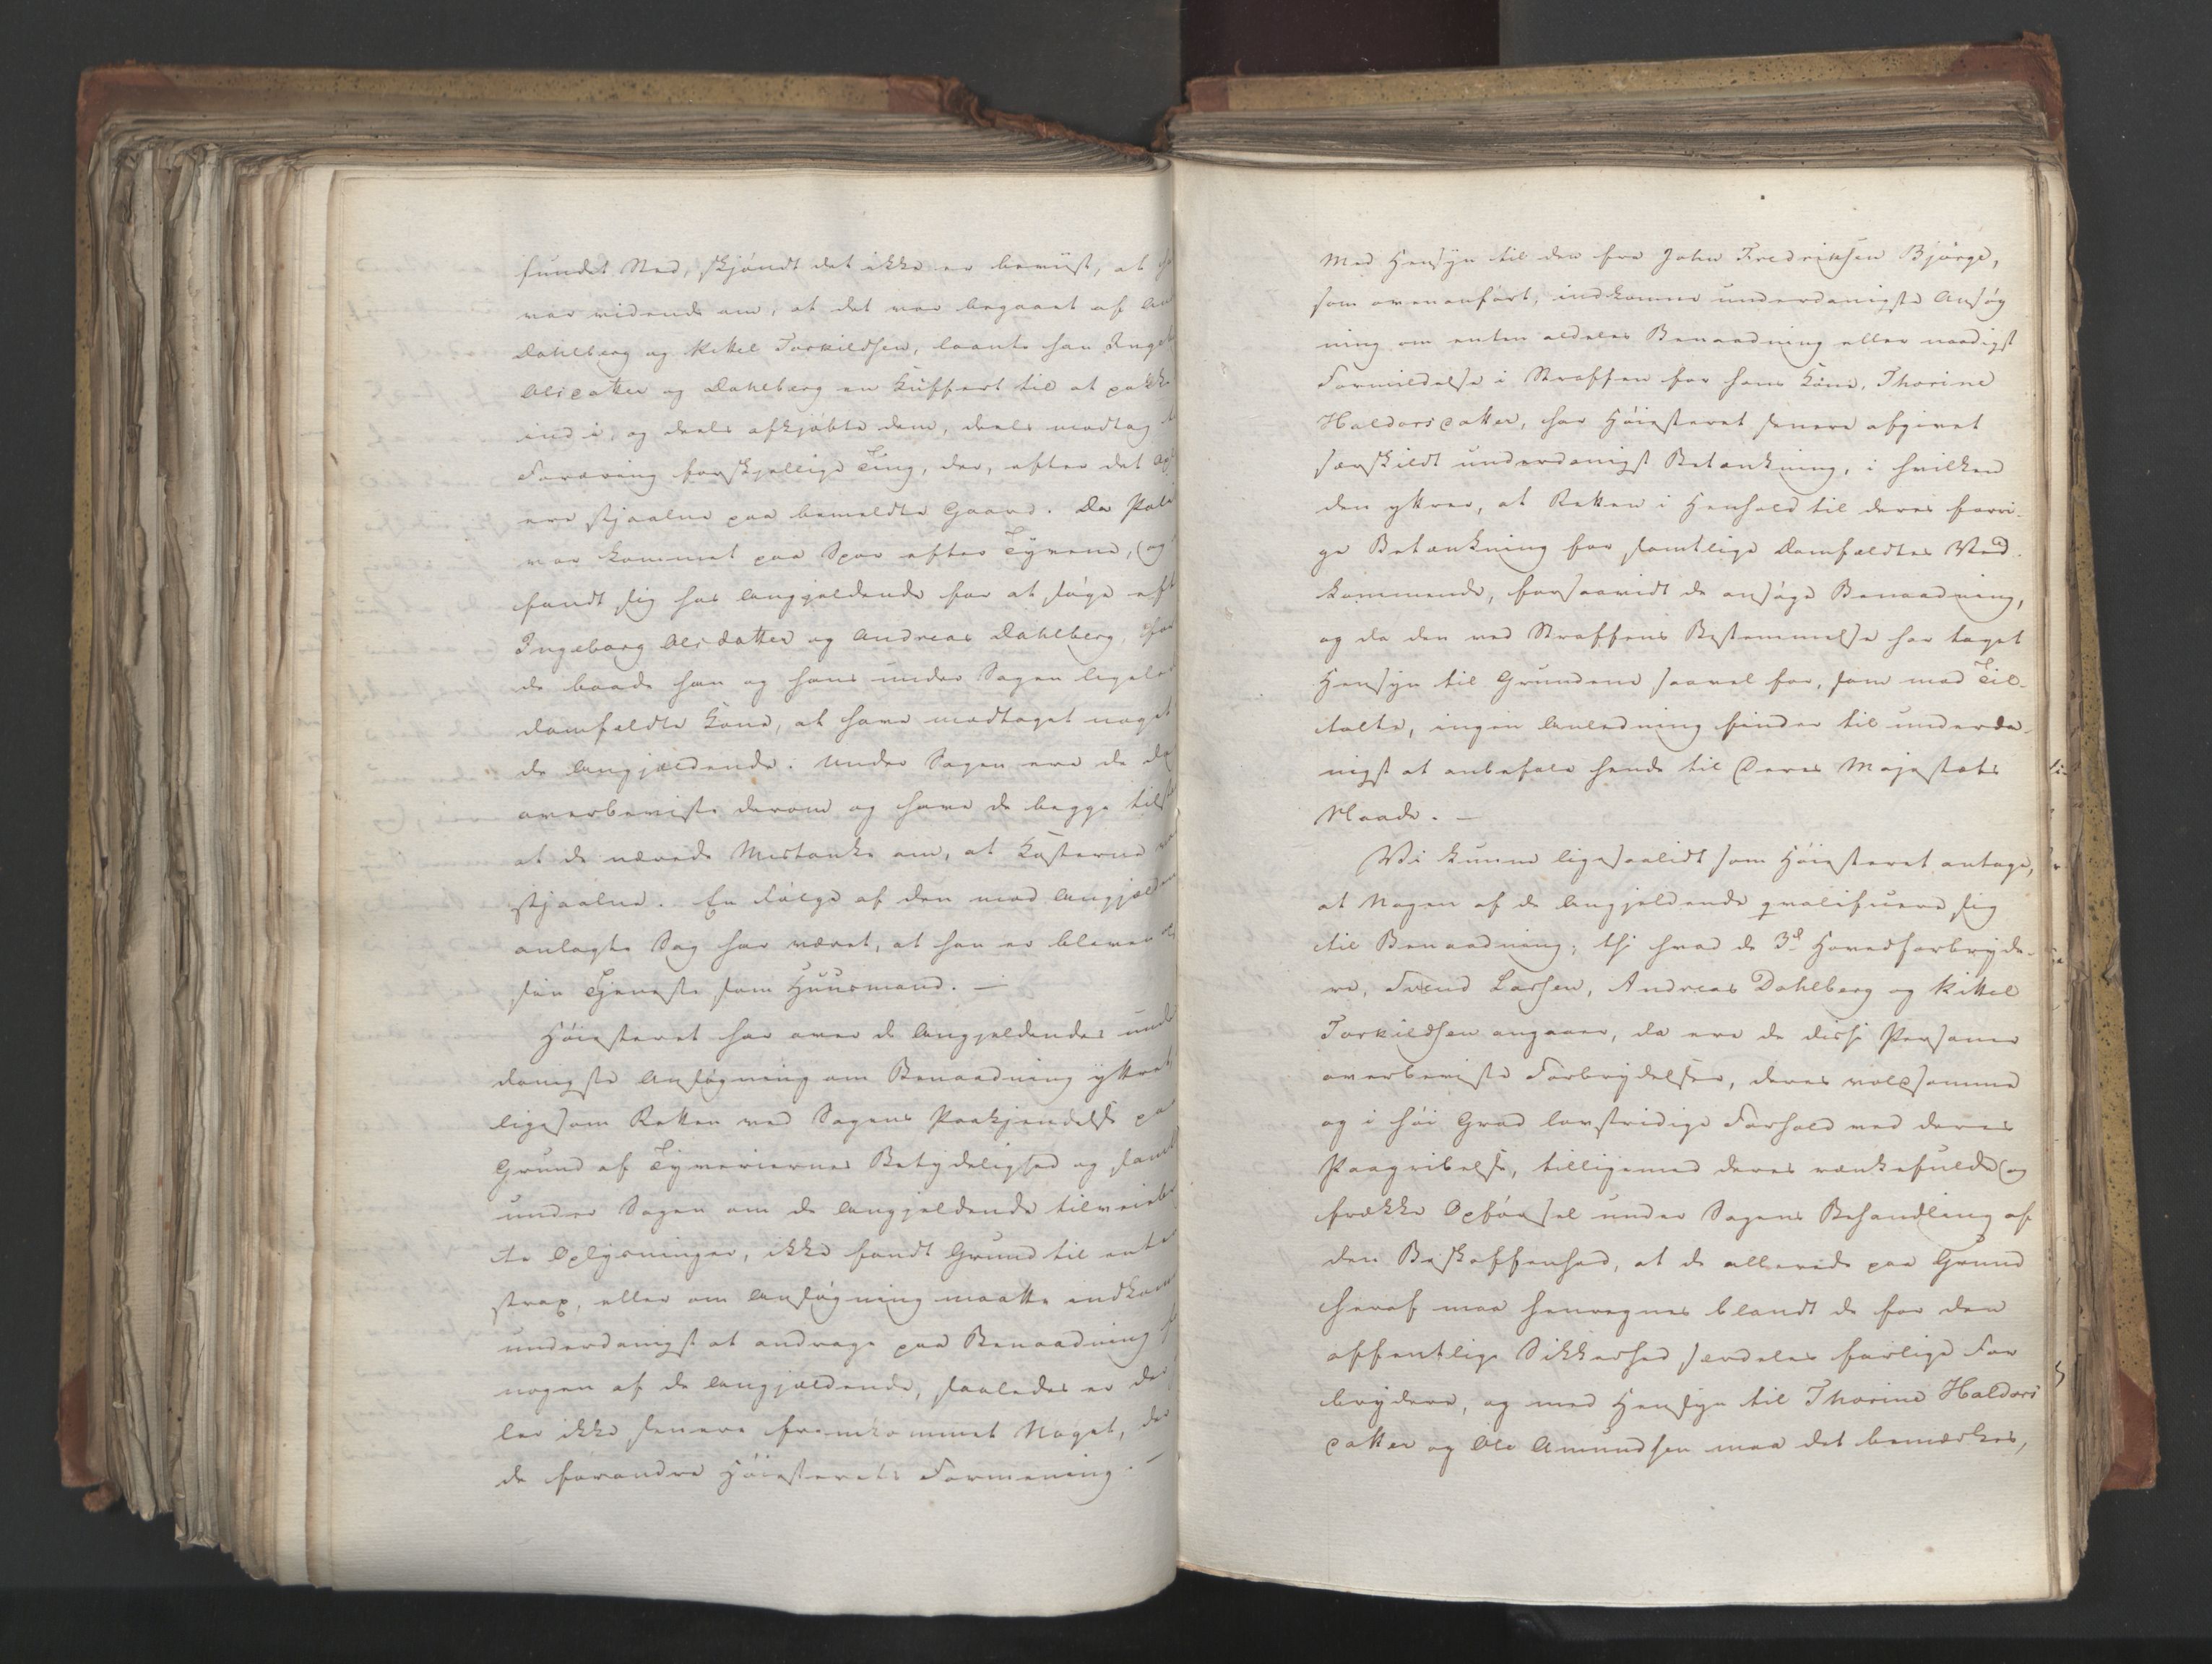 fundet Sted, skjöndt det ikke er beviist, at
var vidende om, at det var begaaet af
Dahlberg og Kittel Torkildsen, laante han
Olsdatter og Dahlberg en Kuffert til at pakke
ind i, og deels afkjöbte dem, deels modtog
Foræring forskjellige Ting, der, efter det
ere stjaalne paa bemeldte Gaard. Da
var kommet paa Spor efter Tyvene, og
fandt sig hos Angjeldende for at söge
Ingeborg Olsdatter og Andreas Dahlberg,
de baade han og hans under Sagen
domfældte Kone, at have modtaget noget
de Angjældende. Under Sagen ere de
overbeviste derom og have de begge
at de nærede Mistanke om, at Kosterne
stjaalne. En Fölge af den mod
anlagte Sag har været, at han er bleven
sin Tjeneste som Huusmand. —
Höiesteret har over de Angjeldendes
danigste Ansögning om Benaadning yttret
ligesom Retten ved Sagens Paakjendelse
Grund af Tyveriernes Betydelighed og
under Sagen om de Angjeldende
te Oplysninger, ikke fandt Grund til
strax, eller om Ansögning maatte
underdanigst at andrage paa Benaadning
nogen af de Angjældende, saaledes er
ler ikke senere fremkommet Noget,
de forandre Höiesterets Formening. —
Med Hensyn til den fra John Fredriksen Bjørge,
som ovenanfört, indkomne underdanigste Ansög
ning om enten aldeles Benaadning eller naadigst
Formildelse i Straffen for hans Kone, Thorine
Haldorsdatter, har Höiesteret senere afgivet
særskildt underdanigst Betænkning, i hvilken
den yttrer, at Retten i Henhold til deres forri-
ge Betænkning for samtlige Domfældtes Ved-
kommende, forsaavidt de ansöge Benaadning,
og da den ved Straffens Bestemmelse har taget
Hensyn til Grundene saavel for, som mod Til-
talte, ingen Anledning finder til underda-
nigst at anbefale hende til Deres Majestæts
Naade. —
Vi kunne ligesaalidt som Höiesteret antage,
at Nogen af de Angjeldende qvalificere sig
til Benaadning; thi hvad de 3de Hovedforbryde-
re, Svend Larsen, Andreas Dahlberg og Kittel
Torkildsen angaaer, da ere de disse Personer
overbeviste Forbrydelser, deres voldsomme
og i höi Grad lovstridige Forhold ved deres
Paagribelse, tilligemed deres rænkefulde og
frække Opförsel under Sagens Behandling af
den Beskaffenhed, at de allerede paa Grund
heraf maa henregnes blandt de for den
offentlige Sikkerhed særdeles farlige For
brydere, og med Hensyn til Thorine Haldors
datter og Ole Amundsen maa det bemærkes,